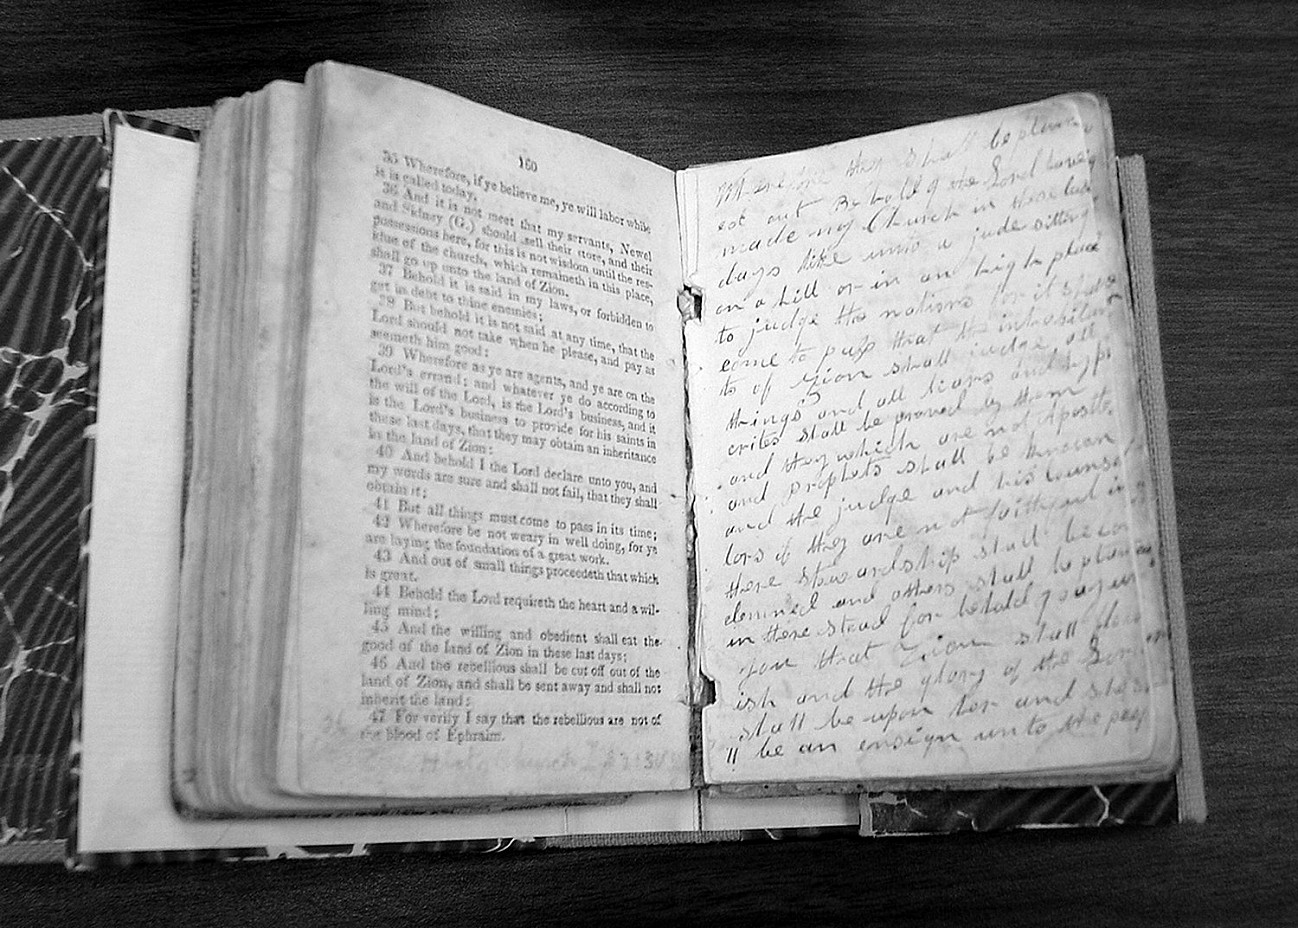 160
35 Wherefore, if ye believe me, ye will labor while
it is called today.
36 And it is not meet that my servants, Newel
and Sidney (G.) should sell their store, and their
possessions here, for this is not wisdom until the res-
idue of the church, which remaineth in this place,
shall go up unto the land of Zion.
37 Behold it is said in my laws, or forbidden to
get in debt to thine enemies;
38 But behold it is not said at any time, that the
Lord should not take when he please, and pay as
seemeth him good:
39 Wherefore as ye are agents, and ye are on the
Lord's errand; and whatever ye do according to
the will of the Lord, is the Lord's business, and it
is the Lord's business to provide for his saints in
these last days, that they may obtain an inheritance
in the land of Zion:
40 And behold I the Lord declare unto you, and
my words are sure and shall not fail, that they shall
obtain it;
41 But all things must come to pass in its time;
42 Wherefore be not weary in well doing, for ye
are laying the foundation of a great work.
43 And out of small things proceedeth that which
is great.
44 Behold the Lord requireth the heart and a wil-
ling mind;
45 And the willing and obedient shall eat the
good of the land of Zion in these last days;
46 And the rebellious shall be cut off out of the
land of Zion, and shall be sent away and shall not
inherit the land:
47 For verily I say that the rebellious are not of
the blood of Ephraim.
Wherefore they shall be pluck
ed out Behold I the Lord have
made my Church in these last
days like unto a jude sitting
on a hill or in an high place
to judge the nations for it shall
come to pass that the inhabitan
ts of Zion shall judge all
things and all liars and hypo
crites shall be proved by them
and they which are not Apostles
and Prophets shall be known
and the judge and his counsel
lors if they are not faithful in
there stewardship shall be con
demned and others shall be planted
in there stead for behold I say unto
you that Zion shall flour
ish and the glory of the Lord
shall be upon her and she sha
ll be an ensign unto the peop